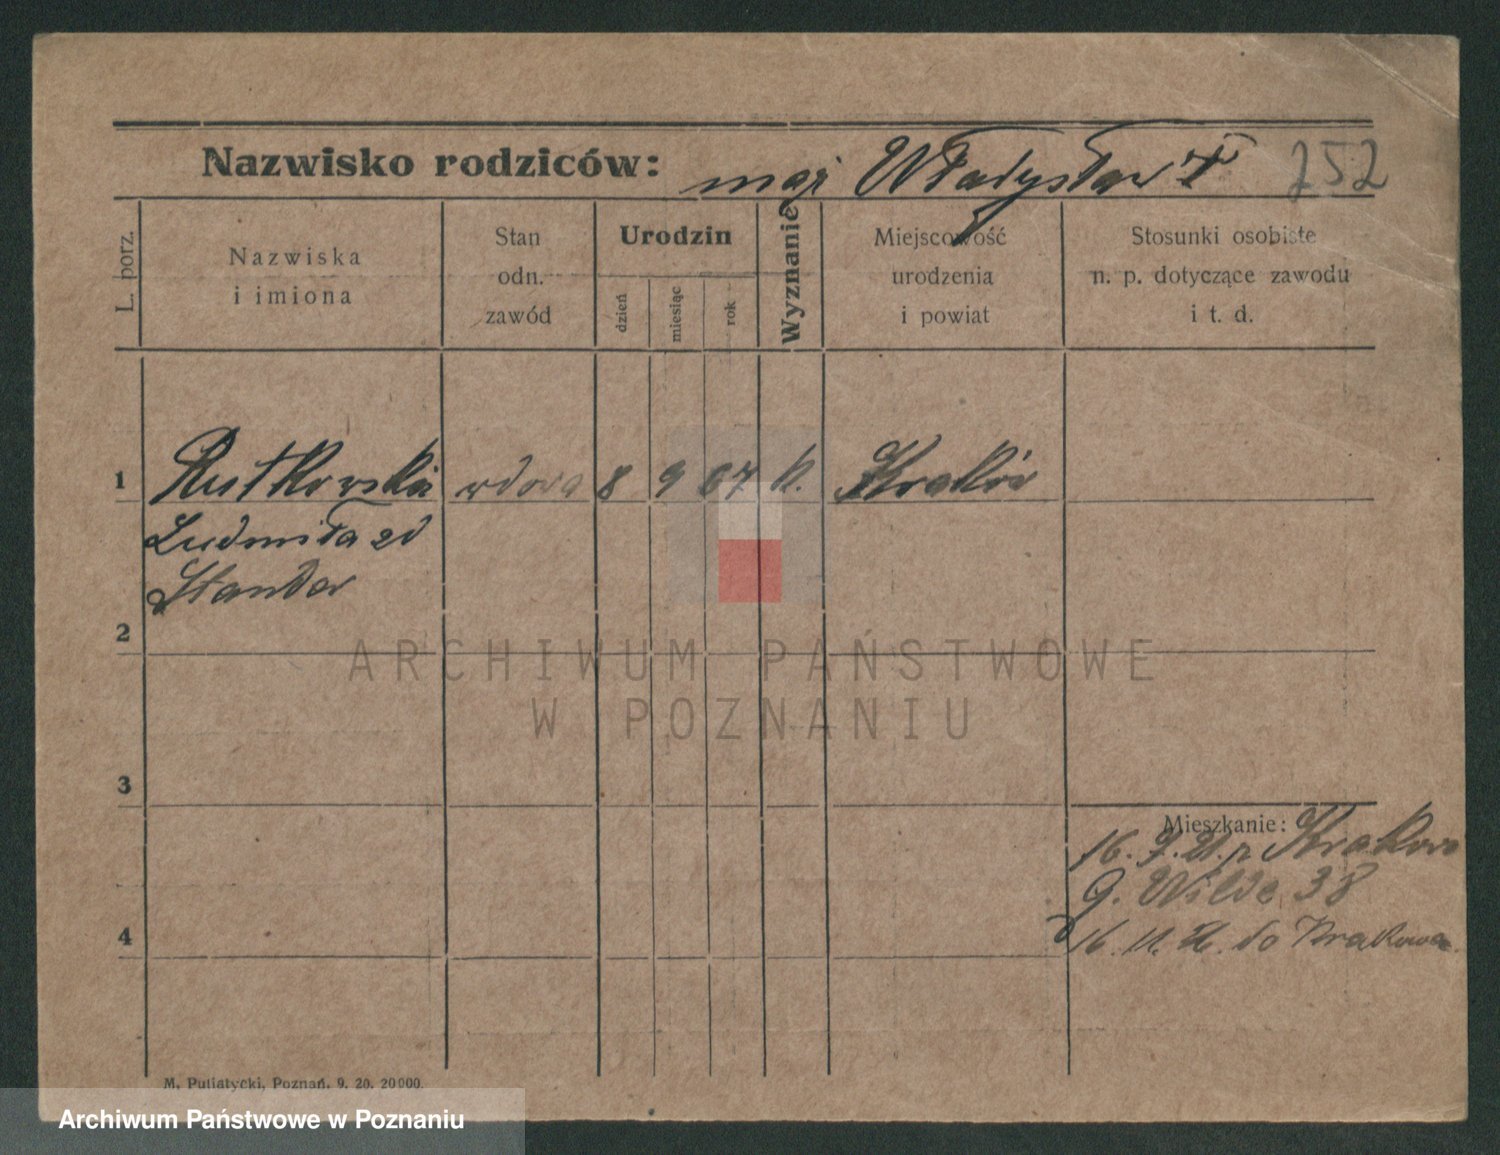 Nazwisko rodziców: mąż Władysław † 252
L. porz.
Nazwiska
i imiona
Stan
odn.
zawód
Urodzin
dzień
miesiąc
rok
Wyznanie
Miejscowość
urodzenia
i powiat
Stosunki osobiste
n. p. dotyczące zawodu
i t. d.
1 Rutkowska wdowa 8 9 67 k. Kraków
Ludmiła zd
2
ARCHIWUM PAŃSTWOWE
W POZNANIU
3
Mieszkanie:
16. 7. 21. z Krakowa
G. Wilda 38
4
16. 11. do Krakowa
M. Putiatycki, Poznań. 9. 20. 20000.
Archiwum Państwowe w Poznaniu